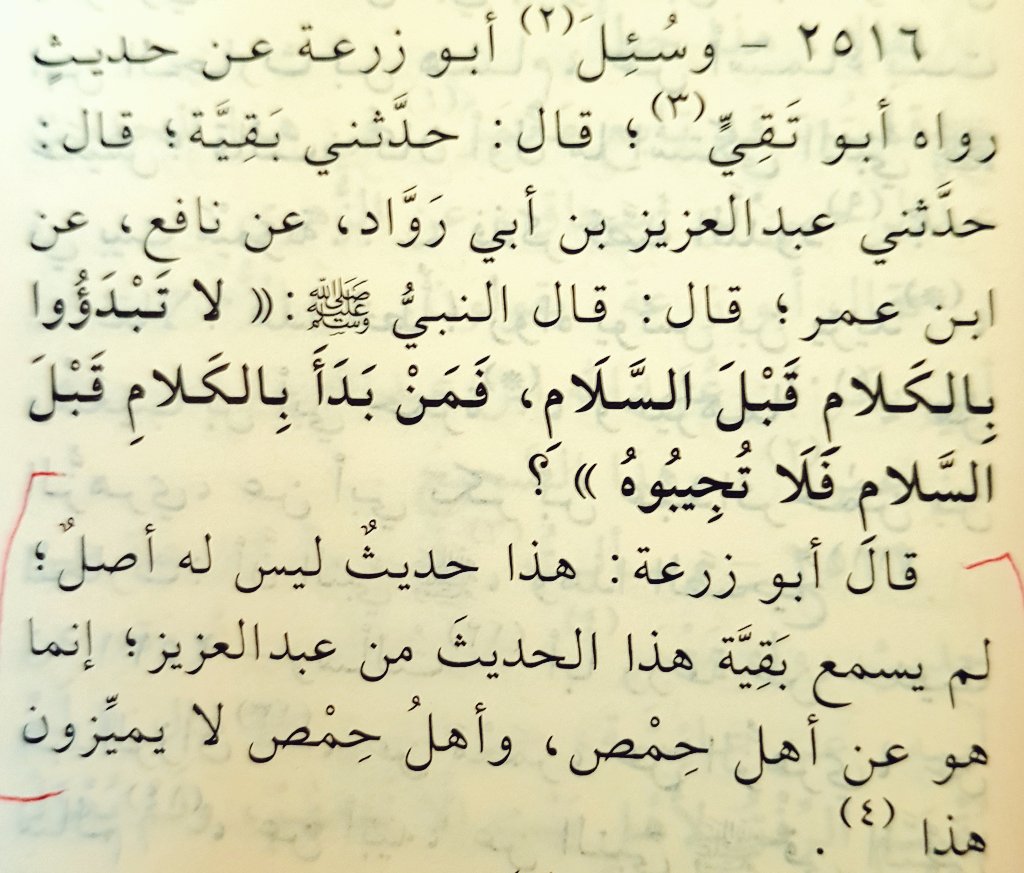 ٢٥١٦ - وسُئِلَ (٢) أبو زرعة عن حديثٍ
رواه أبو تَقِيٍّ (٣)؛ قال: حدَّثني بَقِيَّة؛ قال:
حدَّثني عبدالعزيز بن أبي رَوَّاد، عن نافع، عن
ابن عمر؛ قال: قال النبيُّ ﷺ: (( لا تَبْدَؤُوا
بِالكَلامِ قَبْلَ السَّلَامِ، فَمَنْ بَدَأَ بِالكَلامِ قَبْلَ
السَّلامِ فَلَا تُجِيبُوهُ )) ؟
قالَ أبو زرعة: هذا حديثٌ ليس له أصلٌ؛
لم يسمع بَقِيَّة هذا الحديثَ من عبدالعزيز؛ إنما
هو عن أهل حِمْص، وأهلُ حِمْص لا يميِّزون
هذا (٤) .